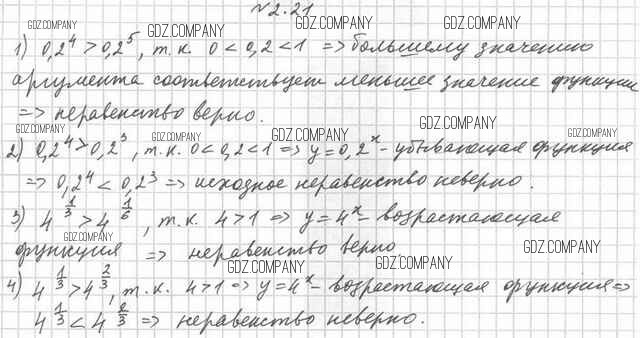 №2.21
GDZ.COMPANY GDZ.COMPANY GDZ.COMPANY GDZ.COMPANY
1) 0,2⁴ > 0,2⁵, т.к. 0 < 0,2 < 1 => большему значению
аргумента соответствует меньшее значение функции
=> неравенство верно.
GDZ.COMPANY GDZ.COMPANY GDZ.COMPANY GDZ.COMPANY GDZ.COMPANY
2) 0,2⁴ > 0,2³, т.к. 0 < 0,2 < 1 => y = 0,2ˣ - убывающая функция
=> 0,2⁴ < 0,2³ => исходное неравенство неверно.
3) 4^(1/3) > 4^(1/6), т.к. 4 > 1 => y = 4ˣ - возрастающая
GDZ.COMPANY
функция => неравенство верно
GDZ.COMPANY GDZ.COMPANY GDZ.COMPANY
4) 4^(1/3) > 4^(2/3), т.к. 4 > 1 => y = 4ˣ - возрастающая функция =>
4^(1/3) < 4^(2/3) => неравенство неверно.